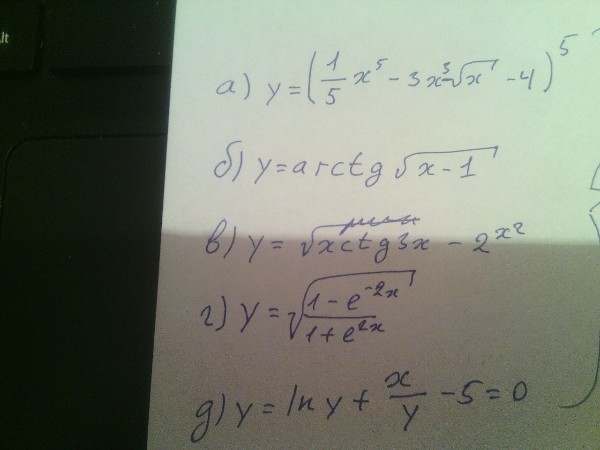 lt
а) y = (1/5 x⁵ - 3x ∛x - 4)⁵
б) y = arctg √(x - 1)
в) y = √x ctg 3x - 2^(x²)
г) y = √((1 - e^(-2x))/(1 + e^(2x)))
д) y = ln y + x/y - 5 = 0